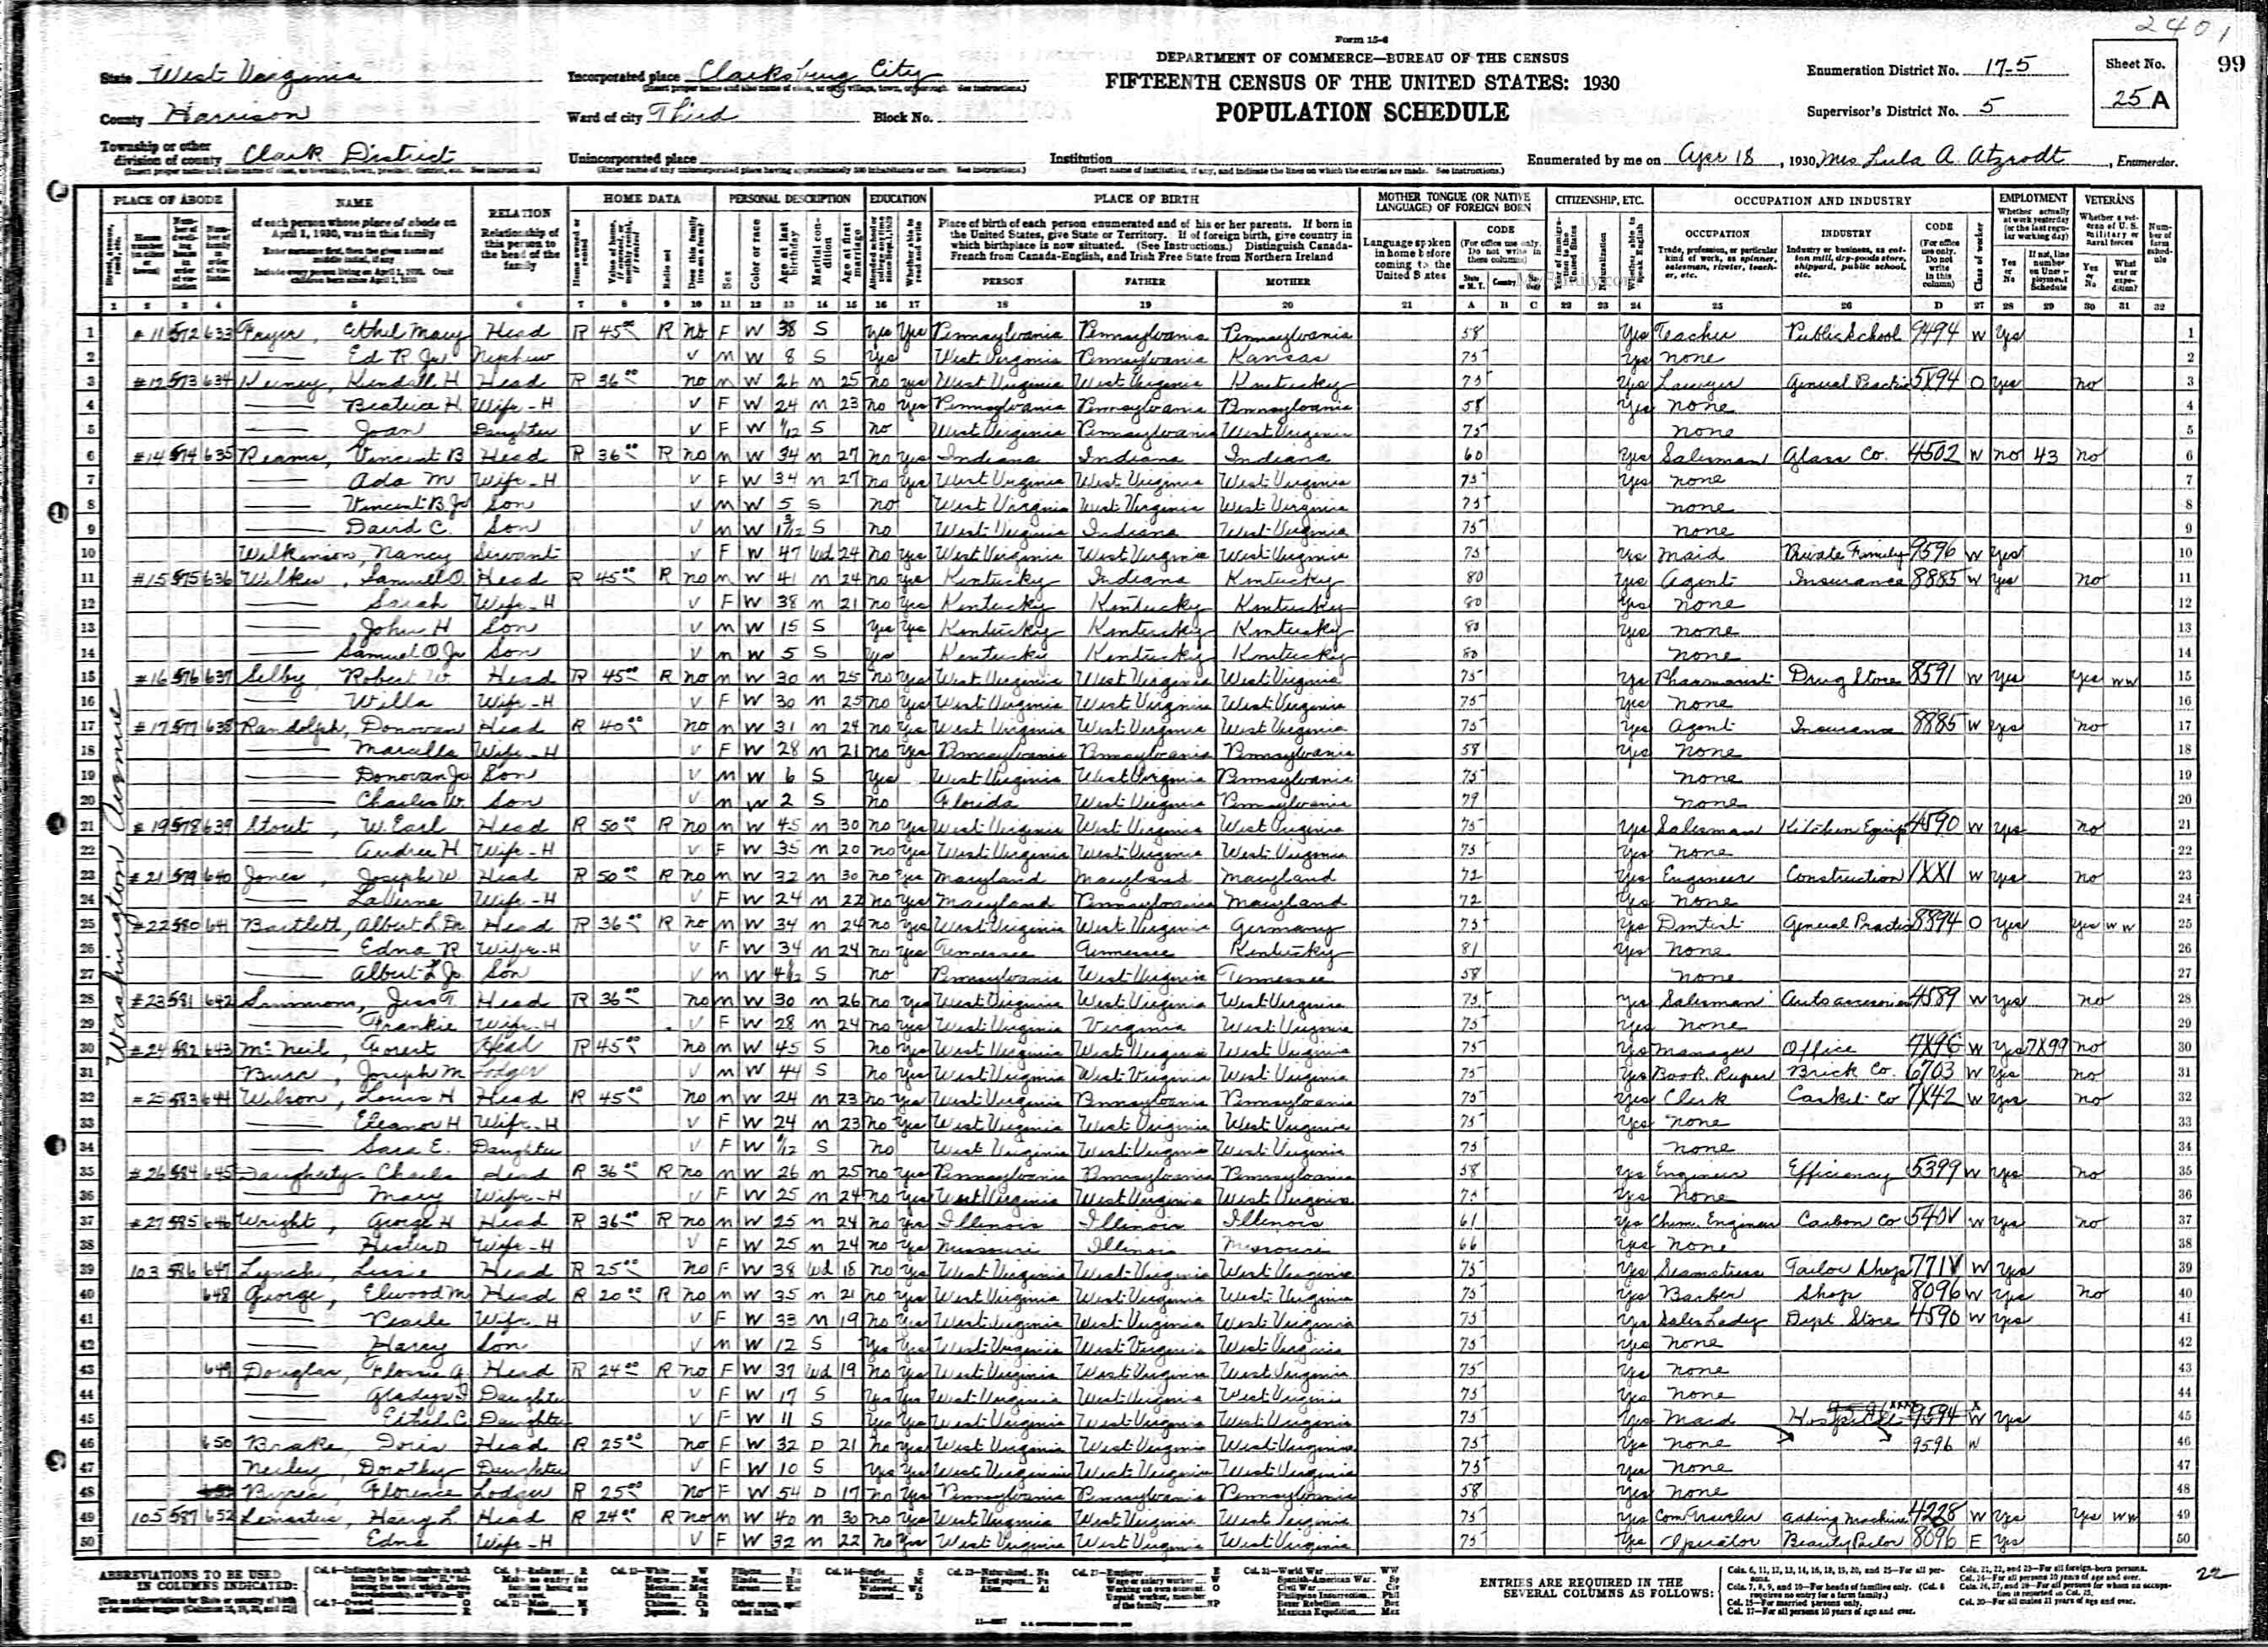 2401
Form 15-6
DEPARTMENT OF COMMERCE—BUREAU OF THE CENSUS
FIFTEENTH CENSUS OF THE UNITED STATES: 1930
POPULATION SCHEDULE
State West Virginia
Incorporated place Clarksburg City
Enumeration District No. 17-5
Sheet No. 25 A
99
County Harrison
Ward of city Third Block No.
Supervisor's District No. 5
Township or other division of county Clark District
Unincorporated place
Institution
Enumerated by me on Apr 18, 1930, Mrs Lula A. Atzrodt, Enumerator.
PLACE OF ABODE NAME RELATION HOME DATA PERSONAL DESCRIPTION EDUCATION PLACE OF BIRTH MOTHER TONGUE (OR NATIVE LANGUAGE) OF FOREIGN BORN CITIZENSHIP, ETC. OCCUPATION AND INDUSTRY EMPLOYMENT VETERANS
of each person whose place of abode on April 1, 1930, was in this family
Relationship of this person to the head of the family
Place of birth of each person enumerated and of his or her parents. If born in the United States, give State or Territory. If of foreign birth, give country in which birthplace is now situated. (See Instructions.) Distinguish Canada-French from Canada-English, and Irish Free State from Northern Ireland
Language spoken in home before coming to the United States
PERSON FATHER MOTHER
OCCUPATION INDUSTRY CODE
Washington Avenue
1 #11 572 633 Ethel Mary Head R 45 R no F W 38 S Yes Yes Pennsylvania Pennsylvania Pennsylvania 58 Yes Teacher Public School 9494 W Yes 1
2 Ed R Jr Nephew V M W 8 S Yes West Virginia Pennsylvania Kansas 75 Yes None 2
3 #12 573 634 Kendall H Head R 36 no M W 26 M 25 no yes West Virginia West Virginia Kentucky 75 Yes Lawyer General Practice 5X94 O Yes no 3
4 Beatrice H Wife-H V F W 24 M 23 no Yes Pennsylvania Pennsylvania Pennsylvania 58 Yes none 4
5 Joan Daughter V F W S no West Virginia Pennsylvania West Virginia 75 none 5
6 #14 574 635 Vincent B Head R 36 R no M W 34 M 27 no Yes Indiana Indiana Indiana 60 Yes Salesman Glass Co. 4502 W no 43 no 6
7 Ada M Wife-H V F W 34 M 27 no Yes West Virginia West Virginia West Virginia 75 Yes none 7
8 Vincent B. Jr Son V M W 5 S no West Virginia West Virginia West Virginia 75 none 8
9 David C. Son V M W S no West Virginia Indiana West Virginia 75 none 9
10 Wilkinson, Nancy Servant V F W 47 Wd 24 no Yes West Virginia West Virginia West Virginia 75 Yes Maid Private Family 9596 W Yes 10
11 #15 575 636 Samuel O. Head R 45 R no M W 41 M 24 no Yes Kentucky Indiana Kentucky 80 Yes Agent Insurance 8885 W Yes no 11
12 Sarah Wife-H V F W 38 M 21 no Yes Kentucky Kentucky Kentucky 80 Yes none 12
13 John H Son V M W 15 S Yes Yes Kentucky Kentucky Kentucky 80 Yes none 13
14 Samuel O Jr Son V M W 5 S Yes Kentucky Kentucky Kentucky 80 none 14
15 #16 576 637 Selby Robert W. Head R 45 R no M W 30 M 25 no Yes West Virginia West Virginia West Virginia 75 Yes Pharmacist Drug Store 8591 W Yes Yes WW 15
16 Willa Wife-H V F W 30 M 25 no Yes West Virginia West Virginia West Virginia 75 Yes None 16
17 #17 577 638 Randolph, Donovan Head R 40 no M W 31 M 24 no Yes West Virginia West Virginia West Virginia 75 Yes Agent Insurance 8885 W Yes no 17
18 Marcella Wife-H V F W 28 M 21 no Yes Pennsylvania Pennsylvania Pennsylvania 58 Yes None 18
19 Donovan Jr Son V M W 6 S Yes West Virginia West Virginia Pennsylvania 75 none 19
20 Charles W. Son V M W 2 S no Florida West Virginia Pennsylvania 79 none 20
21 #19 578 639 Stout, W. Earl Head R 50 R no M W 45 M 30 no Yes West Virginia West Virginia West Virginia 75 Yes Salesman Kitchen Equip 4590 W Yes no 21
22 Audree H Wife-H V F W 35 M 20 no Yes West Virginia West Virginia West Virginia 75 Yes none 22
23 #21 579 640 Jones, Joseph W Head R 50 R no M W 32 M 30 no Yes Maryland Maryland Maryland 72 Yes Engineer Construction 1XX1 W Yes no 23
24 LaVerne Wife-H V F W 24 M 22 no Yes Maryland Pennsylvania Maryland 72 Yes None 24
25 #22 580 641 Bartlett, Albert L. Dr Head R 36 R no M W 34 M 24 no Yes West Virginia West Virginia Germany 75 Yes Dentist General Practice 8894 O Yes Yes WW 25
26 Edna R Wife-H V F W 34 M 24 no Yes Tennessee Tennessee Kentucky 81 Yes None 26
27 Albert L Jr Son V M W S no Pennsylvania West Virginia Tennessee 58 none 27
28 #23 581 642 Simmons, Jess T. Head R 36 no M W 30 M 26 no Yes West Virginia West Virginia West Virginia 75 Yes Salesman Auto accessories 4589 W Yes no 28
29 Frankie Wife-H V F W 28 M 24 no Yes West Virginia Virginia West Virginia 75 Yes none 29
30 #24 582 643 McNeil, Forest Head R 45 no M W 45 S no Yes West Virginia West Virginia West Virginia 75 Yes Manager Office W Yes 7X99 no 30
31 Joseph M Lodger V M W 44 S no Yes West Virginia West Virginia West Virginia 75 Yes Book Keeper Brick Co. 6703 W Yes no 31
32 25 583 644 Wilson, Louis H Head R 45 no M W 24 M 23 no Yes West Virginia Pennsylvania Pennsylvania 75 Yes Clerk Casket Co 7X42 W Yes no 32
33 Eleanor H Wife-H V F W 24 M 23 no Yes West Virginia West Virginia West Virginia 75 Yes none 33
34 Sara E. Daughter V F W S no West Virginia West Virginia West Virginia 75 none 34
35 #26 584 645 Daugherty Charles Head R 36 R no M W 26 M 25 no Yes Pennsylvania Pennsylvania Pennsylvania 58 Yes Engineer Efficiency 5399 W Yes no 35
36 Mary Wife-H V F W 25 M 24 no Yes West Virginia West Virginia West Virginia 75 Yes None 36
37 #27 585 646 Wright, George H Head R 36 R no M W 25 M 24 no Yes Illinois Illinois Illinois 61 Yes Chem. Engineer Carbon Co 540V W Yes no 37
38 Hester D Wife-H V F W 25 M 24 no Yes Missouri Illinois Missouri 66 Yes none 38
39 103 586 647 Lynch, Head R 25 no F W 38 Wd 18 no Yes West Virginia West Virginia West Virginia 75 Yes Seamstress Tailor Shop 771V W Yes 39
40 648 George, Elwood M Head R 20 R no M W 35 M 21 no Yes West Virginia West Virginia West Virginia 75 Yes Barber Shop 8096 W Yes no 40
41 Pearle Wife-H V F W 33 M 19 no Yes West Virginia West Virginia West Virginia 75 Yes Sales Lady Dept Store 4590 W Yes 41
42 Harry Son V M W 12 S Yes Yes West Virginia West Virginia West Virginia 75 Yes none 42
43 649 Douglas, Head R 24 R no F W 37 Wd 19 no Yes West Virginia West Virginia West Virginia 75 Yes none 43
44 Gladys Daughter V F W 17 S Yes Yes West Virginia West Virginia West Virginia 75 Yes none 44
45 Ethel C Daughter V F W 11 S Yes Yes West Virginia West Virginia West Virginia 75 Yes Maid 9594 W Yes 45
46 650 Brake, Doris Head R 25 no F W 32 D 21 no Yes West Virginia West Virginia West Virginia 75 Yes none 9596 W 46
47 Dorothy Daughter V F W 10 S Yes Yes West Virginia West Virginia West Virginia 75 Yes None 47
48 Florence Lodger R 25 no F W 54 D 17 no Yes Pennsylvania Pennsylvania Pennsylvania 58 Yes None 48
49 105 587 652 Harry L Head R 24 R no M W 40 M 30 no Yes West Virginia West Virginia West Virginia 75 Yes Com Traveler Adding Machine 4228 W Yes Yes WW 49
50 Edna Wife-H V F W 32 M 22 no Yes West Virginia West Virginia West Virginia 75 Yes Operator Beauty Parlor 8096 E Yes 50
ABBREVIATIONS TO BE USED IN COLUMNS INDICATED:
ENTRIES ARE REQUIRED IN THE SEVERAL COLUMNS AS FOLLOWS:
22